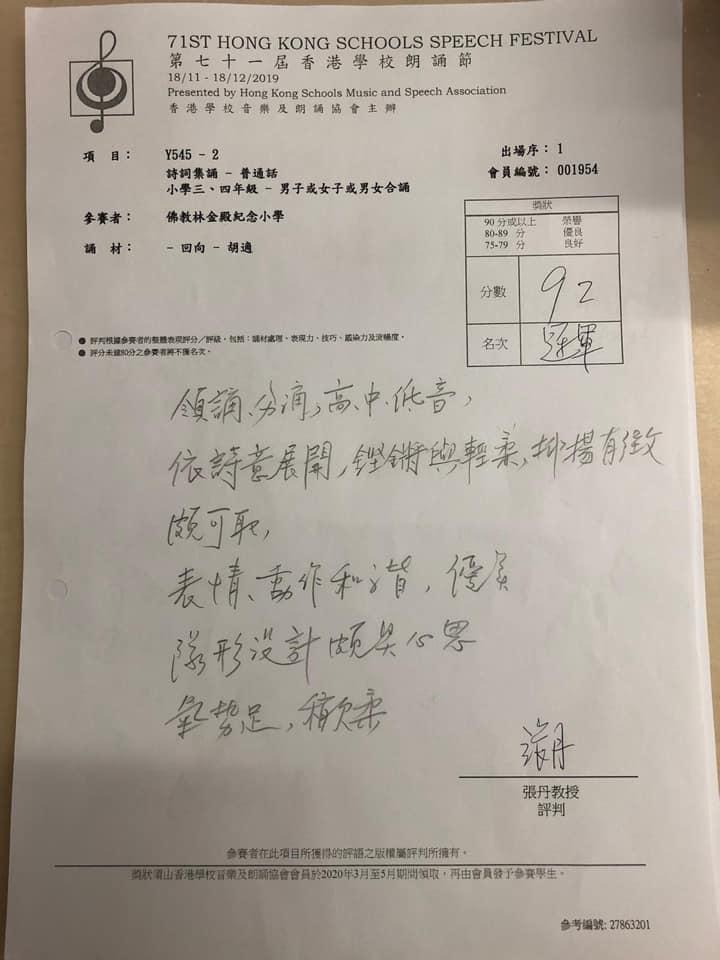 71ST HONG KONG SCHOOLS SPEECH FESTIVAL
第七十一屆香港學校朗誦節
18/11 - 18/12/2019
Presented by Hong Kong Schools Music and Speech Association
香港學校音樂及朗誦協會主辦
項 目： Y545 - 2
出場序： 1
詩詞集誦 - 普通話
會員編號： 001954
小學三、四年級 - 男子或女子或男女合誦
參賽者： 佛教林金殿紀念小學
誦 材： - 回向 - 胡適
獎狀
90 分或以上 榮譽
80-89 分 優良
75-79 分 良好
分數 92
名次 冠軍
● 評判根據參賽者的整體表現評分／評級，包括：誦材處理、表現力、技巧、感染力及流暢度。
● 評分未達80分之參賽者將不獲名次。
領誦、分誦，高、中、低音，
依詩意展開，鏗鏘與輕柔，抑揚有緻
頗可取，
表情、動作和諧，優美
隊形設計頗具心思
氣勢足，稍欠柔
張丹
張丹教授
評判
參賽者在此項目所獲得的評語之版權屬評判所擁有。
獎狀須由香港學校音樂及朗誦協會會員於2020年3月至5月期間領取，再由會員發予參賽學生。
參考編號: 27863201